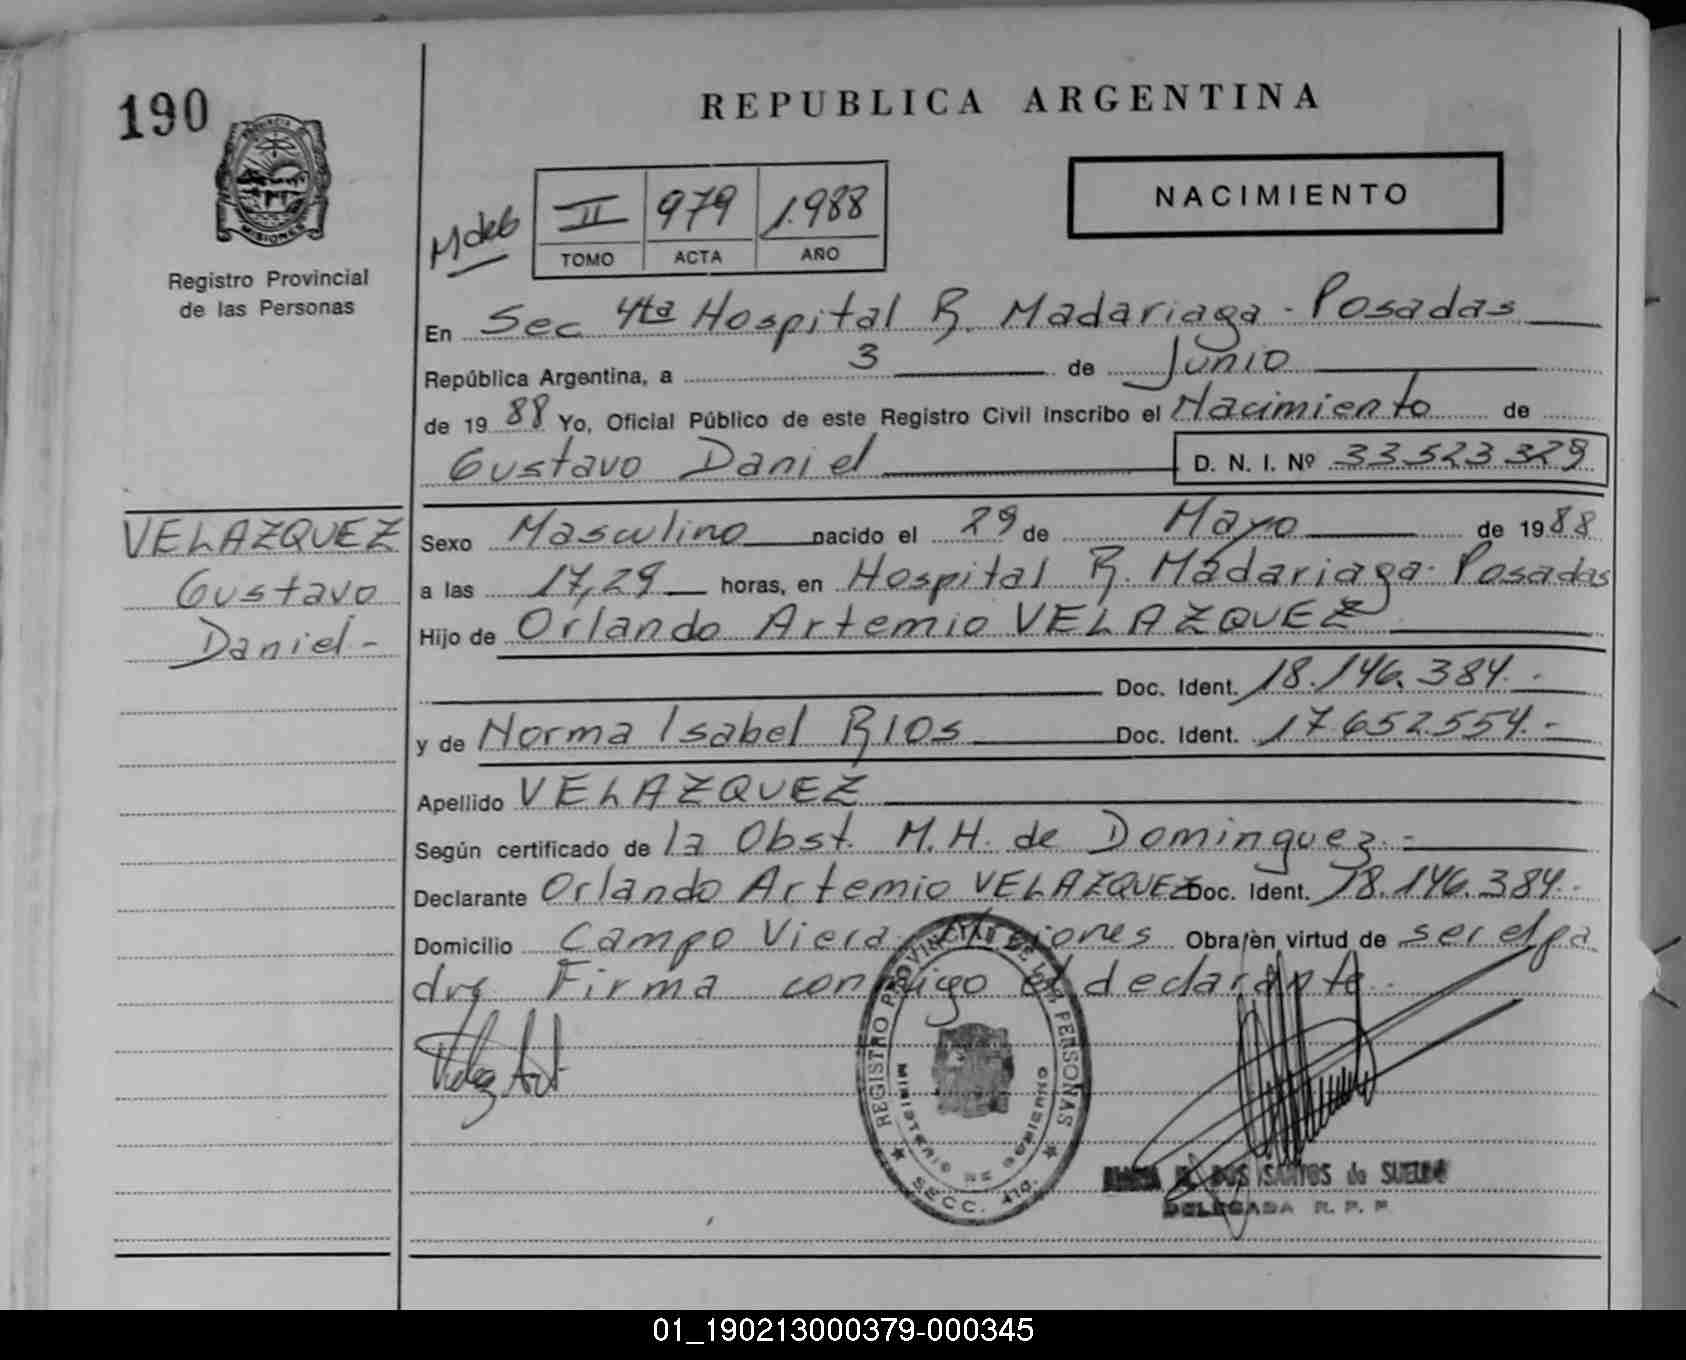 190
REPUBLICA ARGENTINA
PROVINCIA DE
MISIONES
Registro Provincial
de las Personas
NACIMIENTO
II 979 1.988
TOMO ACTA AÑO
En Sec 4ta Hospital R. Madariaga - Posadas
República Argentina, a 3 de Junio
de 19 88 Yo, Oficial Público de este Registro Civil inscribo el Nacimiento de
Gustavo Daniel D. N. I. Nº 33523329
VELAZQUEZ
Gustavo
Daniel -
Sexo Masculino nacido el 29 de Mayo de 19 88
a las 17,29 horas, en Hospital R. Madariaga - Posadas
Hijo de Orlando Artemio VELAZQUEZ
Doc. Ident. 18.146.384.-
y de Norma Isabel RIOS Doc. Ident. 17652554.-
Apellido VELAZQUEZ
Según certificado de la Obst. M. H. de Dominguez.-
Declarante Orlando Artemio VELAZQUEZ Doc. Ident. 18.146.384.-
Domicilio Campo Viera Misiones Obra/en virtud de ser el pa
dre Firma conmigo el declarante.
REGISTRO PROVINCIAL DE LAS PERSONAS
MINISTERIO DE GOBIERNO
SECC. 4ta.
DOS SANTOS de SUELDO
DELEGADA R. P. P.
01_190213000379-000345